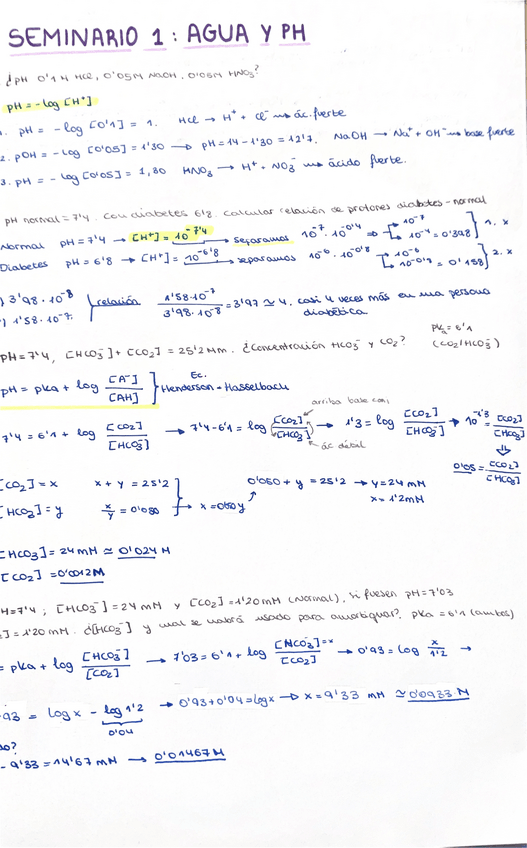 SEMINARIO 1: AGUA Y PH
¿PH 0'1M HCl, 0'05M NaOH, 0'05M HNO₃?
pH = -log [H⁺]
1. pH = -log [0'1] = 1. HCl → H⁺ + Cl⁻ → ác. fuerte
2. pOH = -log [0'05] = 1'30 → pH = 14 - 1'30 = 12'7. NaOH → Na⁺ + OH⁻ → base fuerte
3. pH = -log [0'05] = 1,30 HNO₃ → H⁺ + NO₃⁻ → ácido fuerte.
pH normal = 7'4. Con diabetes 6'8. Calcular relación de protones diabetes-normal
Normal pH = 7'4 → [H⁺] = 10^-7'4 → separamos 10^-7 · 10^-0'4 ⇒ 10^-7 10^-0'4 = 0'398 } 1. x
Diabetes pH = 6'8 → [H⁺] = 10^-6'8 → separamos 10^-6 · 10^-0'8 10^-6 10^-0'8 = 0'158 } 2. x
) 3'98 · 10^-8
) 1'58 · 10^-7 } relación 1'58·10^-7 / 3'98·10^-8 = 3'97 ≃ 4. casi 4 veces más en una persona diabética
pH = 7'4, [HCO₃⁻] + [CO₂] = 25'2 mM. ¿Concentración HCO₃⁻ y CO₂? pKa = 6'1 (CO₂/HCO₃⁻)
pH = pKa + log [A⁻]/[AH] } Ec. Henderson-Hasselbach
arriba base conj
7'4 = 6'1 + log [CO₂]/[HCO₃⁻] → 7'4 - 6'1 = log [CO₂]/[HCO₃⁻] → 1'3 = log [CO₂]/[HCO₃⁻] → 10^-1'3 = [CO₂]/[HCO₃⁻]
ác débil
0'05 = [CO₂]/[HCO₃⁻]
[CO₂] = x x + y = 25'2 0'050 + y = 25'2 → y = 24 mM
[HCO₃⁻] = y x/y = 0'050 } → x = 0'050y x = 1'2 mM
[HCO₃⁻] = 24 mM ≃ 0'024 M
[CO₂] = 0'0012 M
H = 7'4; [HCO₃⁻] = 24 mM y [CO₂] = 1'20 mM (Normal), si fuesen pH = 7'03
] = 1'20 mM. ¿[HCO₃⁻] y cual se habrá usado para amortiguar?. pKa = 6'1 (ambos)
= pKa + log [HCO₃⁻]/[CO₂] → 7'03 = 6'1 + log [HCO₃⁻]=x/[CO₂] → 0'93 = log x/1'2 →
93 = log x - log 1'2 → 0'93 + 0'04 = log x → x = 9'33 mM ≃ 0'0933 M
0'04
do?
- 9'33 = 14'67 mM → 0'01467 M